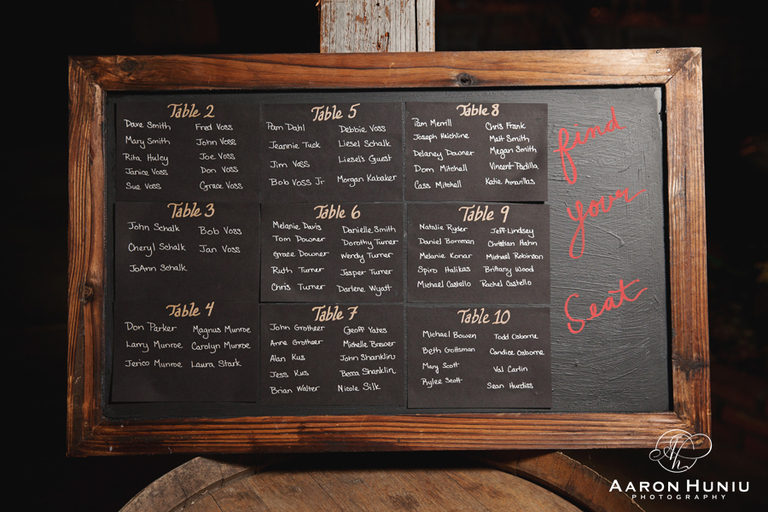 Table 2
Dave Smith Fred Voss
Mary Smith John Voss
Rita Huley Joe Voss
Janice Voss Don Voss
Sue Voss Grace Voss
Table 5
Pam Dahl Debbie Voss
Jeannie Tuck Liesel Schalk
Jim Voss Liesel's Guest
Bob Voss Jr Morgan Kabaker
Table 8
Pam Merrill Chris Frank
Joseph Reichline Matt Smith
Delaney Downer Megan Smith
Dom Mitchell Vincent Padilla
Cass Mitchell Katie Amarillas
Table 3
John Schalk Bob Voss
Cheryl Schalk Jan Voss
JoAnn Schalk
Table 6
Melanie Davis Danielle Smith
Tom Downer Dorothy Turner
Grace Downer Wendy Turner
Ruth Turner Jasper Turner
Chris Turner Darlene Wyatt
Table 9
Natalie Ryder Jeff Lindsey
Daniel Borrman Christian Hahn
Melanie Konar Michael Robinson
Spiro Halikas Brittany Wood
Michael Castello Rachel Castello
Table 4
Don Parker Magnus Munroe
Larry Munroe Carolyn Munroe
Jerico Munroe Laura Stark
Table 7
John Grotheer Geoff Yates
Anne Grotheer Michelle Brewer
Alan Kus John Shanklin
Jess Kus Becca Shanklin
Brian Walter Nicole Silk
Table 10
Michael Bowen Todd Osborne
Beth Gottsman Candice Osborne
Mary Scott Val Carlin
Rylee Scott Sean Hurdiss
find
your
Seat
AARON HUNIU
PHOTOGRAPHY